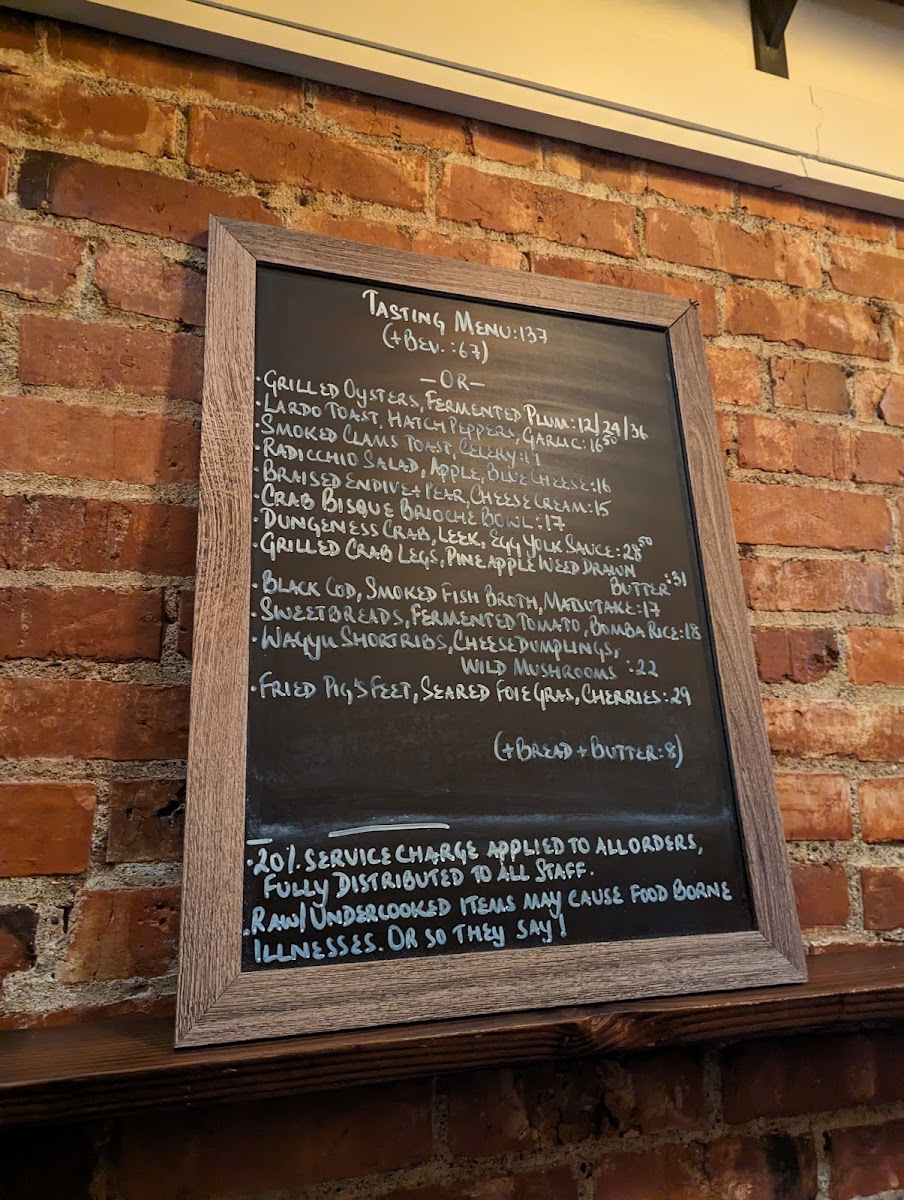 TASTING MENU:137
(+BEV.:67)
-OR-
·GRILLED OYSTERS, FERMENTED PLUM:12/24/36
·LARDO TOAST, HATCH PEPPERS, GARLIC:16⁵⁰
·SMOKED CLAMS TOAST, CELERY:
·RADICCHIO SALAD, APPLE, BLUE CHEESE:16
·BRAISED ENDIVE+PEAR, CHEESE CREAM:15
·CRAB BISQUE BRIOCHE BOWL:17
·DUNGENESS CRAB, LEEK, EGG YOLK SAUCE:28⁵⁰
·GRILLED CRAB LEGS, PINEAPPLE WEED DRAWN
BUTTER:31
·BLACK COD, SMOKED FISH BROTH, MATSUTAKE:17
·SWEETBREADS, FERMENTED TOMATO, BOMBA RICE:18
·WAGYU SHORTRIBS, CHEESE DUMPLINGS,
WILD MUSHROOMS :22
·FRIED PIG'S FEET, SEARED FOIE GRAS, CHERRIES:29
(+BREAD+BUTTER:8)
·20% SERVICE CHARGE APPLIED TO ALL ORDERS,
FULLY DISTRIBUTED TO ALL STAFF.
·RAW/UNDERCOOKED ITEMS MAY CAUSE FOOD BORNE
ILLNESSES. OR SO THEY SAY!